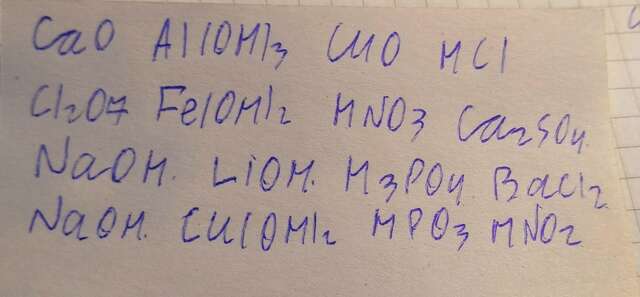 CaO Al(OH)3 CuO HCl
Cl2O7 Fe(OH)2 HNO3 Ca2SO4
NaOH. LiOH. H3PO4 BaCl2
NaOH. Cu(OH)2 HPO3 HNO2